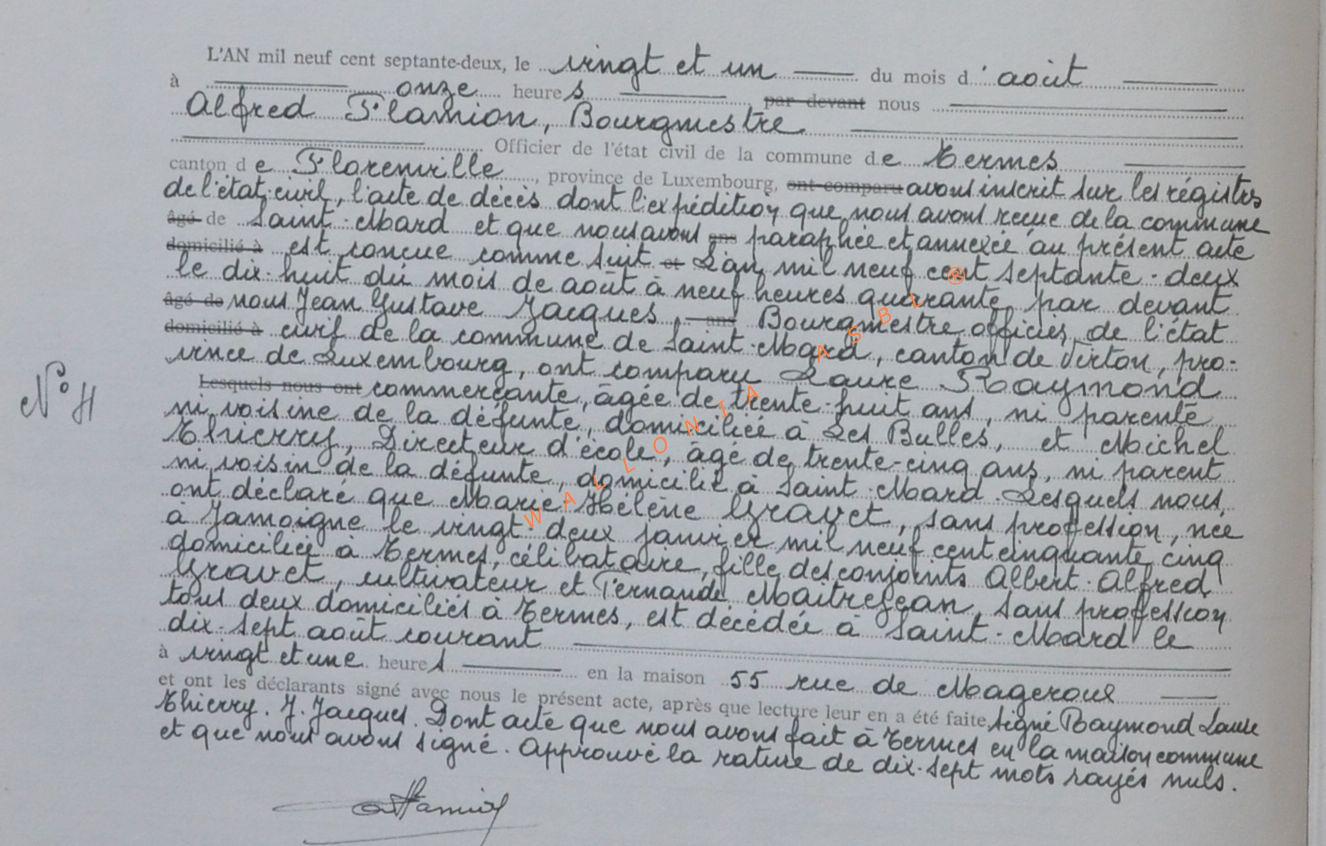 L'AN mil neuf cent septante-deux, le vingt et un du mois d'août
à onze heures, par devant nous
Alfred Flamion, Bourgmestre
Officier de l'état civil de la commune de Termes
canton de Florenville, province de Luxembourg, ont comparu avons inscrit sur les régistres
de l'état civil, l'acte de décès dont l'expédition que nous avons reçue de la commune
âgé de Saint-Mard et que nous avons ans paraphée et annexée au présent acte
domicilié à est conçue comme suit et L'an mil neuf cent septante-deux
le dix-huit du mois de août à neuf heures quarante, par devant
âgé de nous Jean Gustave Jacques, ans Bourgmestre officier de l'état
domicilié à civil de la commune de Saint-Mard, canton de Virton, pro-
vince de Luxembourg, ont comparu Laure Baymond
Lesquels nous ont commerçante, âgée de trente-huit ans, ni parente
ni voisine de la défunte, domiciliée à Les Bulles, et Michel
Thierry, Directeur d'école, âgé de trente-cinq ans, ni parent
ni voisin de la défunte, domicilié à Saint-Mard. Lesquels nous
ont déclaré que Marie-Hélène Gravet, sans profession, née
à Jamoigne le vingt-deux janvier mil neuf cent cinquante cinq
domiciliée à Termes, célibataire, fille des conjoints Albert-Alfred
Gravet, cultivateur et Fernande Maitrejean, sans profession
tous deux domiciliés à Termes, est décédée à Saint-Mard le
dix-sept août courant
à vingt et une heures en la maison 55 rue de Mageroux
et ont les déclarants signé avec nous le présent acte, après que lecture leur en a été faite, signé Baymond Laure
Thierry. J. Jacques. Dont acte que nous avons fait à Termes en la maison commune
et que nous avons signé. Approuvé la rature de dix-sept mots rayés nuls.
N° 11
AFlamion
WALLONIA ASBL ©